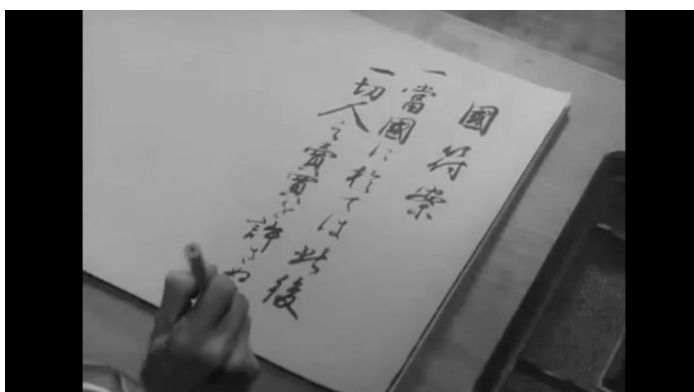 國符案
一當國に於ては此後
一切人之賣買を許さぬ